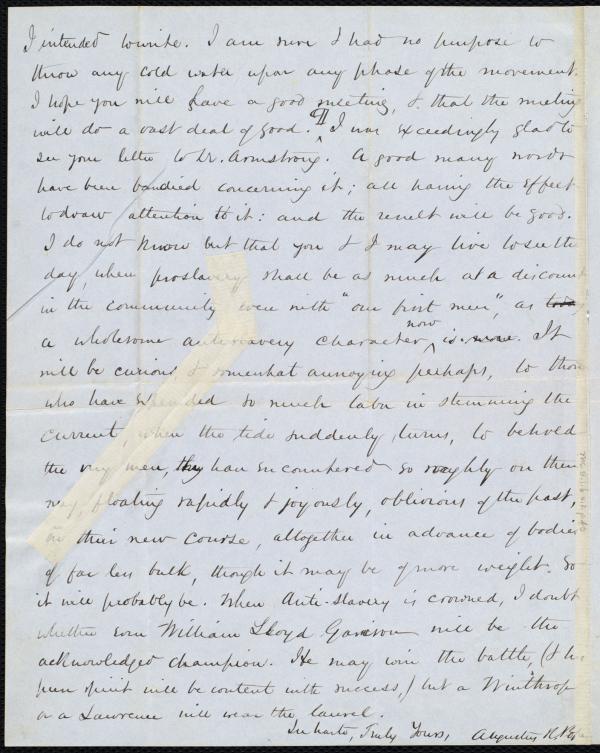 I intended to write. I am sure I had no purpose to
throw any cold water upon any phase of the movement.
I hope you will have a good meeting, & that the meeting
will do a vast deal of good. ¶ I was exceedingly glad to
see your letter to Dr. Armstrong. A good many words
have been bandied concerning it; all having the effect
to draw attention to it: and the result will be good.
I do not know but that you & I may live to see the
day, when proslavery shall be as much at a discount
in the community even with "our first men", as
a wholesome antislavery character now is. It
will be curious, & somewhat annoying perhaps, to those
who have expended so much labor in stemming the
current, when the tide suddenly turns, to behold
the very men, they have encountered so roughly on their
way, floating rapidly & joyously, oblivious of the past,
in their new course, altogether in advance of bodies
of far less bulk, though it may be of more weight. So
it will probably be. When Anti-slavery is crowned, I doubt
whether even William Lloyd Garrison will be the
acknowledged champion. He may win the battle, (& his
pure spirit will be content with success,) but a Winthrop
or a Lawrence will wear the laurel.
In haste, Truly Yours, Augustus R. Pope